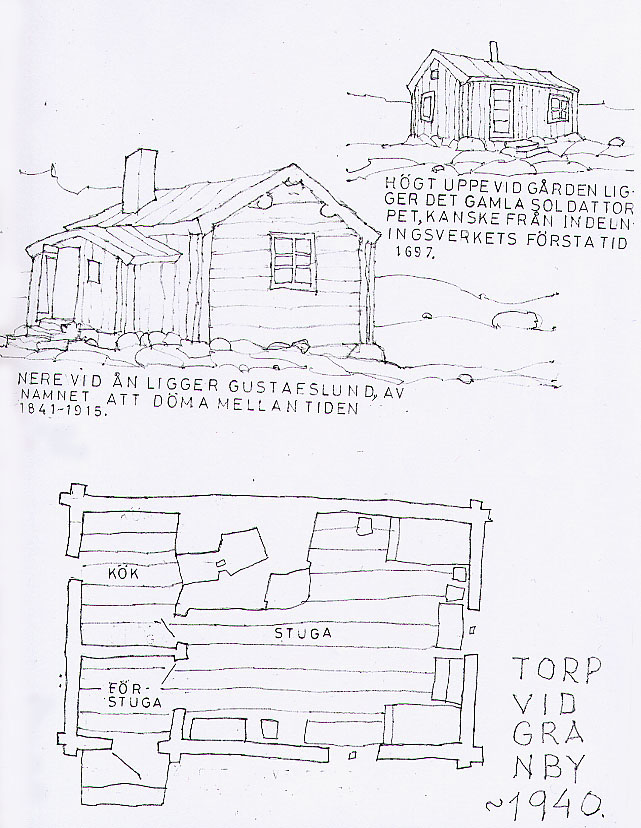 HÖGT UPPE VID GÅRDEN LIG-
GER DET GAMLA SOLDATTOR
PET, KANSKE FRÅN INDELN-
INGSVERKETS FÖRSTA TID
1697.
NERE VID ÅN LIGGER GUSTAFSLUND, AV
NAMNET ATT DÖMA MELLAN TIDEN
1841-1915.
KÖK
STUGA
FÖR-
STUGA
TORP
VID
GRA
NBY
~1940.